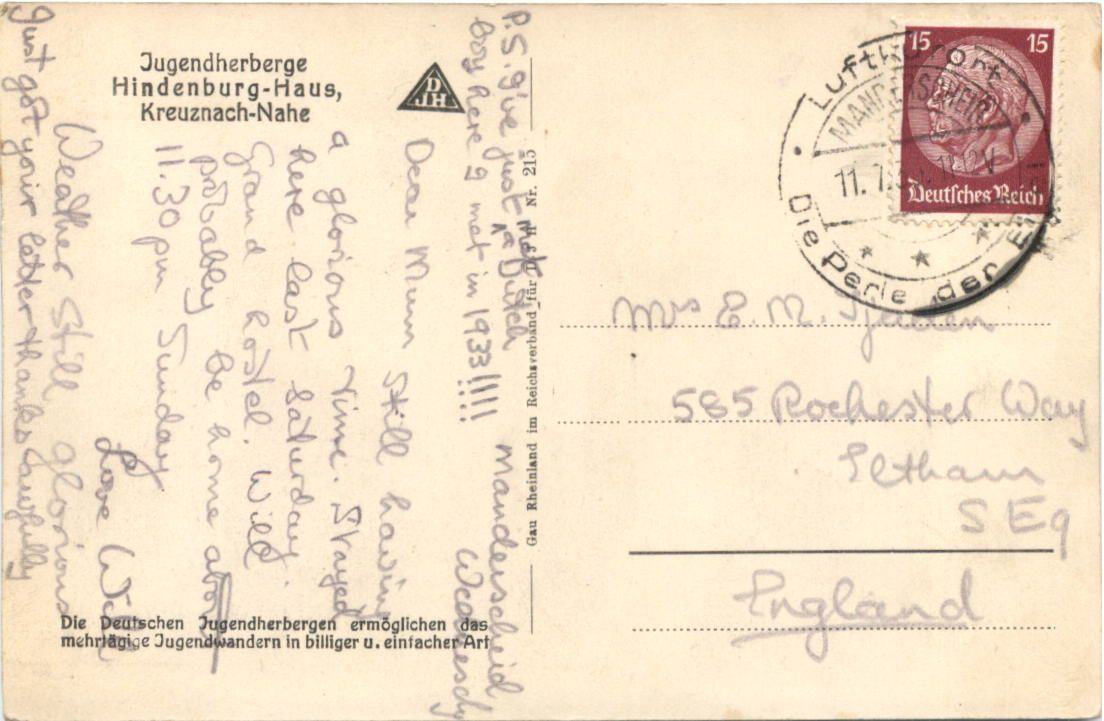 Jugendherberge
Hindenburg-Haus,
Kreuznach-Nahe
DJH
Manderscheid
Wednesday
Dear Mum Still having
a glorious time. Stayed
here last Saturday.
Grand Hostel. Will
probably be home about
11.30 pm Sunday
Love
Weather Still glorious
Just got your letter thanks awfully
P.S. I've just met a Dutch
boy here I met in 1933!!!!
Die Deutschen Jugendherbergen ermöglichen das
mehrtägige Jugendwandern in billiger u. einfacher Art
Gau Rheinland im Reichsverband für DJH Nr. 215
15 15
Deutsches Reich
Luftkurort
MANDERSCHEID
11.7.
Die Perle der
Mrs E. M. Tjaden
585 Rochester Way
Eltham
S E 9
England